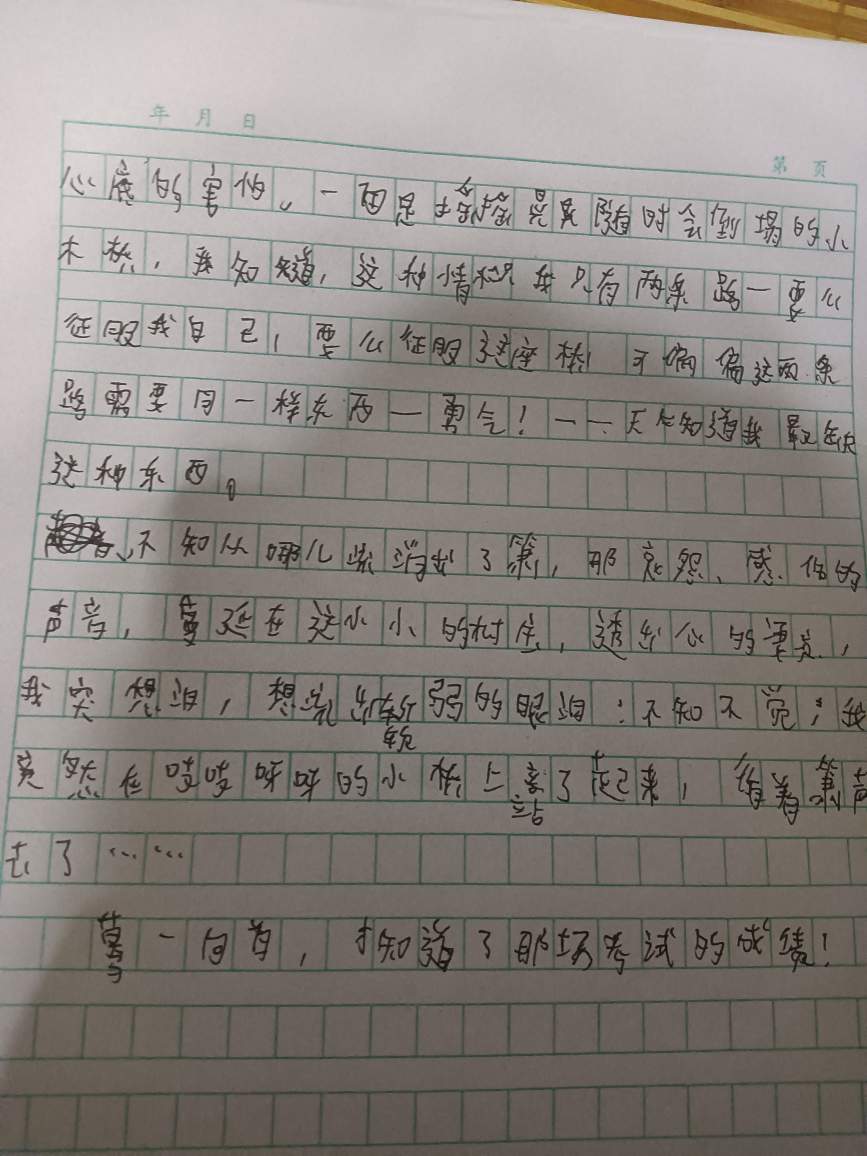 年 月 日
第 页
心底的害怕。一面是摇摇晃晃随时会倒塌的小
木桥,我知道,这种情况我只有两条路一要么
征服我自己,要么征服这座桥!可偏偏这两条
路需要同一样东西一勇气!一一天知道我最缺
这种东西。
不知从哪儿流淌出了箫,那哀怨、感伤的
声音,蔓延在这小小的村庄,透出心的凄凉,
我突想泪,想流出软弱的眼泪:不知不觉;我
竟然在吱吱呀呀的小桥上站了起来,循着箫声
去了……
蓦一回首,才知道了那场考试的成绩!